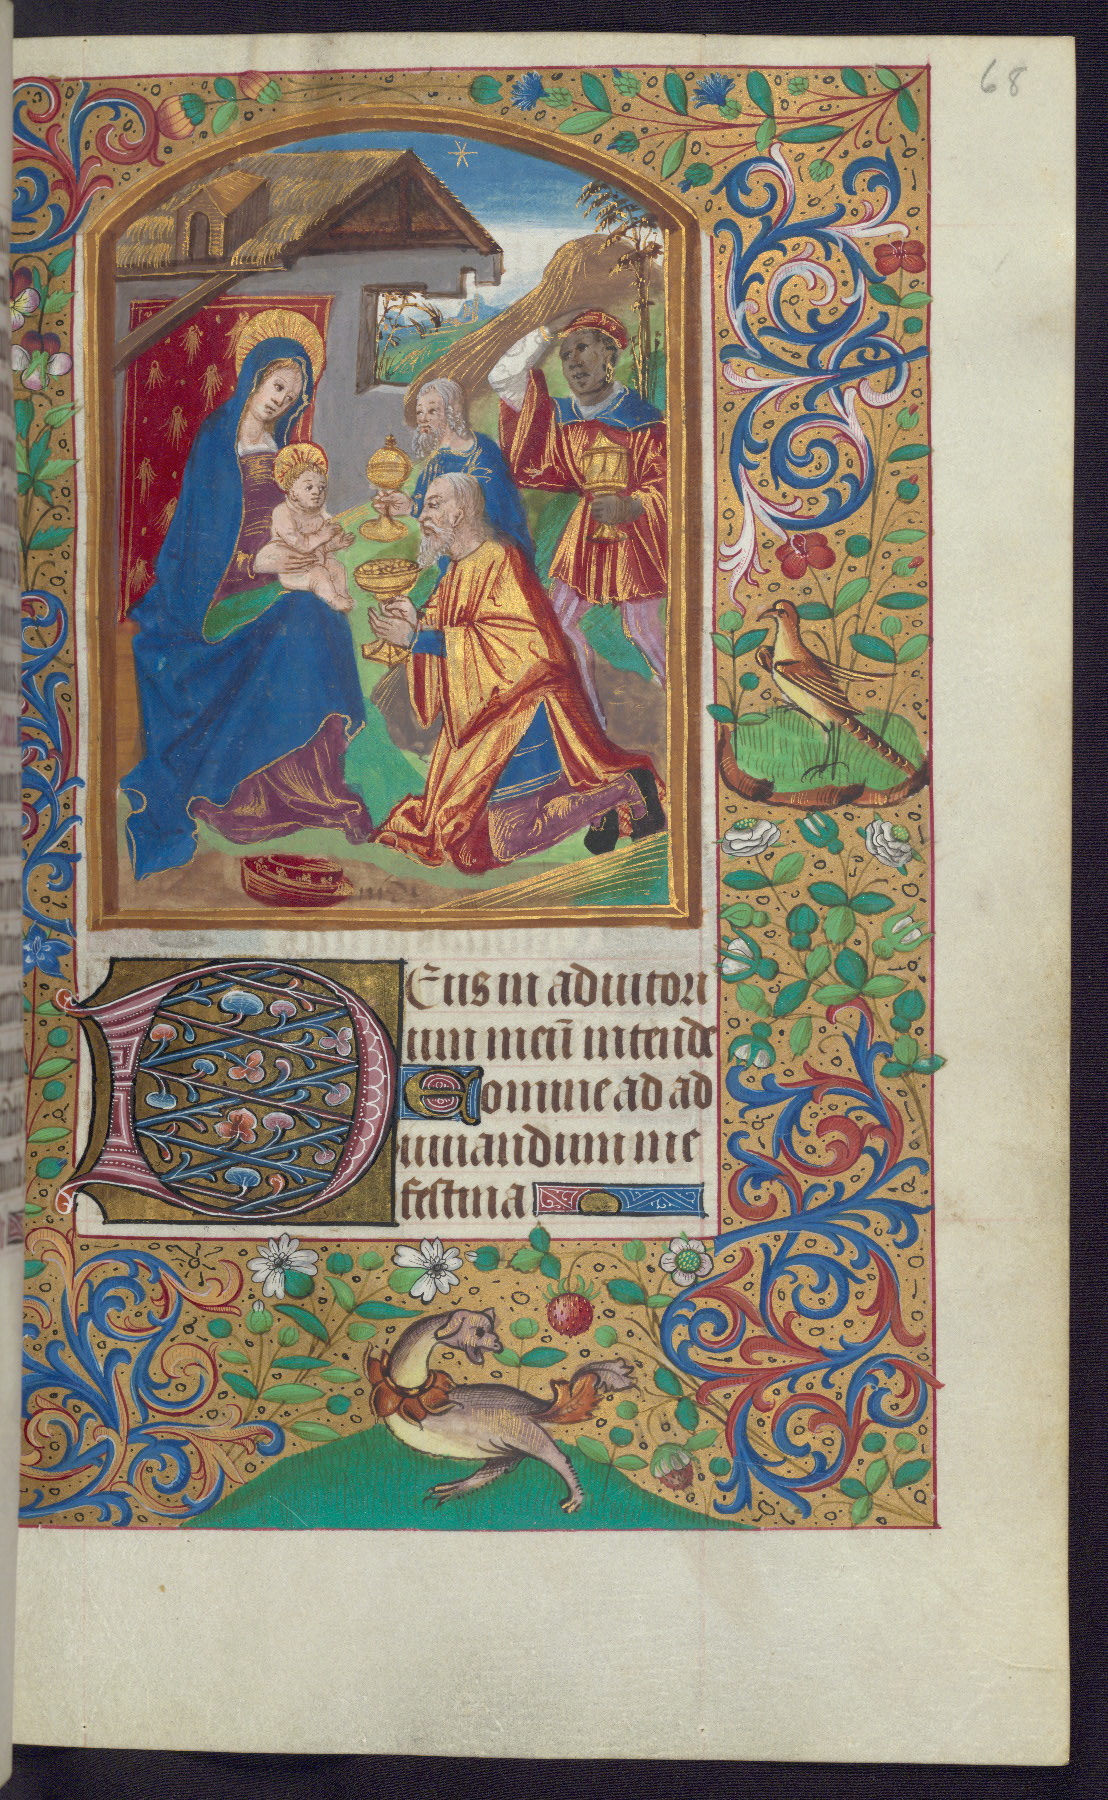 68
Deus in adiutori
um meū intende
Domine ad ad
iuuandum me
festina